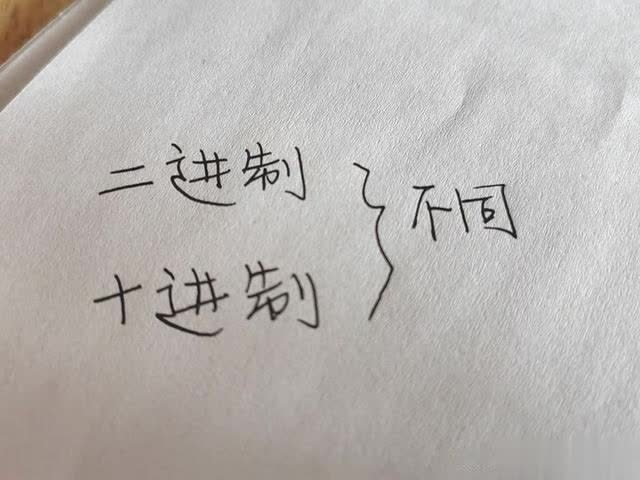 二进制
十进制
不同